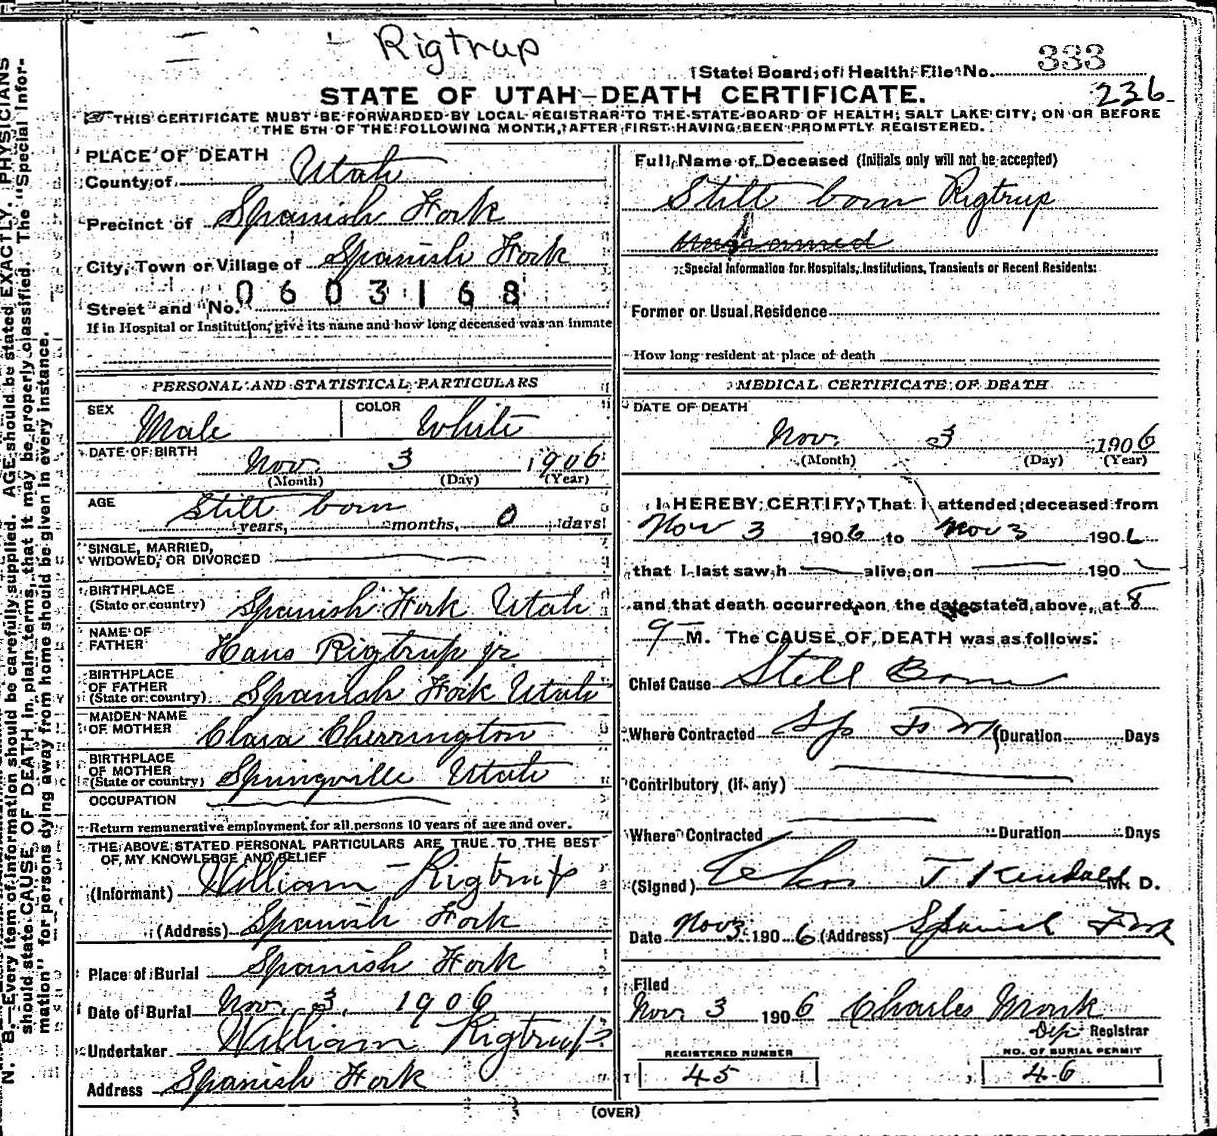 Rigtrup
State Board of Health File No. 333
236
STATE OF UTAH—DEATH CERTIFICATE.
THIS CERTIFICATE MUST BE FORWARDED BY LOCAL REGISTRAR TO THE STATE BOARD OF HEALTH, SALT LAKE CITY, ON OR BEFORE
THE 5TH OF THE FOLLOWING MONTH, AFTER FIRST HAVING BEEN PROMPTLY REGISTERED.
N. B.—Every item of information should be carefully supplied. AGE should be stated EXACTLY. PHYSICIANS
should state CAUSE OF DEATH in plain terms, that it may be properly classified. The "Special Infor-
mation" for persons dying away from home should be given in every instance.
PLACE OF DEATH
County of Utah
Precinct of Spanish Fork
City, Town or Village of Spanish Fork
Street and No. 0603168
If in Hospital or Institution, give its name and how long deceased was an inmate
PERSONAL AND STATISTICAL PARTICULARS
SEX Male COLOR White
DATE OF BIRTH Nov. 3 1906
(Month) (Day) (Year)
AGE Still born
years, months, 0 days
SINGLE, MARRIED,
WIDOWED, OR DIVORCED
BIRTHPLACE
(State or country) Spanish Fork Utah
NAME OF
FATHER Hans Rigtrup jr.
BIRTHPLACE
OF FATHER
(State or country) Spanish Fork Utah
MAIDEN NAME
OF MOTHER Clara Cherrington
BIRTHPLACE
OF MOTHER
(State or country) Springville Utah
OCCUPATION
Return remunerative employment for all persons 10 years of age and over.
THE ABOVE STATED PERSONAL PARTICULARS ARE TRUE TO THE BEST
OF MY KNOWLEDGE AND BELIEF
(Informant) William Rigtrup
(Address) Spanish Fork
Place of Burial Spanish Fork
Date of Burial Nov. 3, 1906
Undertaker William Rigtrup
Address Spanish Fork
Full Name of Deceased (Initials only will not be accepted)
Still born Rigtrup
Special Information for Hospitals, Institutions, Transients or Recent Residents:
Former or Usual Residence
How long resident at place of death
MEDICAL CERTIFICATE OF DEATH
DATE OF DEATH
Nov. 3 1906
(Month) (Day) (Year)
I HEREBY CERTIFY, That I attended deceased from
Nov 3 1906 to Nov 3 1906
that I last saw h alive on 190
and that death occurred on the date stated above, at 8
M. The CAUSE OF DEATH was as follows:
Chief Cause Still Born
Where Contracted Sp Fork Duration Days
Contributory (if any)
Where Contracted Duration Days
(Signed) T Kendall M. D.
Date Nov 3 1906 (Address) Spanish Fork
Filed
Nov 3 1906 Charles Monk
Dep. Registrar
REGISTERED NUMBER NO. OF BURIAL PERMIT
45 46
(OVER)